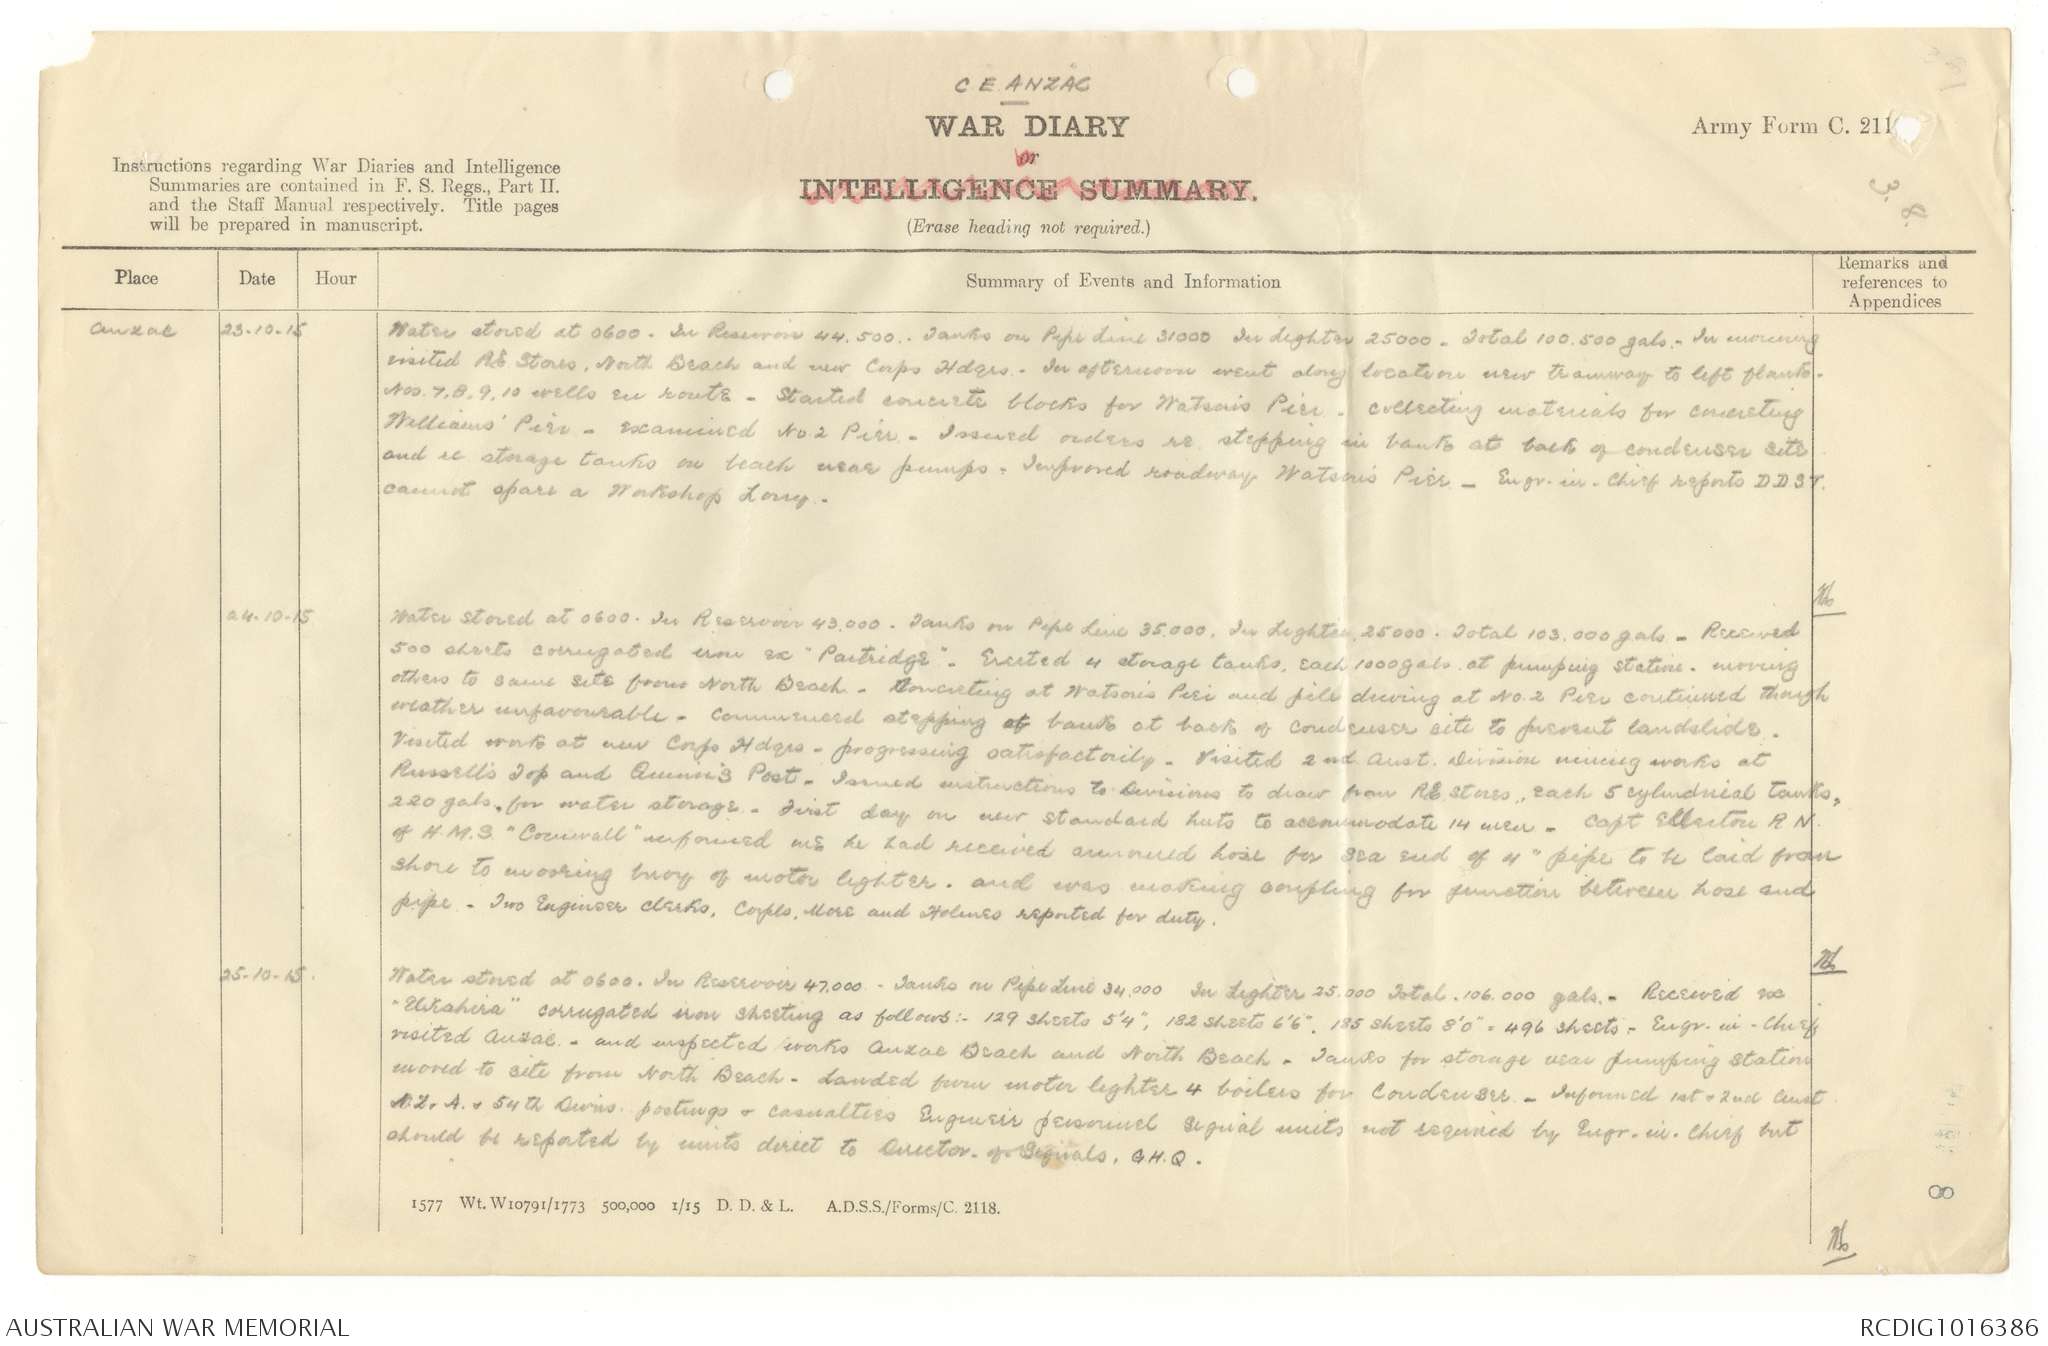 C E ANZAC
WAR DIARY
or
INTELLIGENCE SUMMARY.
(Erase heading not required.)
Army Form C. 211
Instructions regarding War Diaries and Intelligence
Summaries are contained in F. S. Regs., Part II.
and the Staff Manual respectively. Title pages
will be prepared in manuscript.
3. 8.
Place Date Hour Summary of Events and Information Remarks and
references to
Appendices
Anzac 23-10-15 Water stored at 0600. In Reservoir 44,500. Tanks on Pipe Line 31000 In Lighter 25000 - Total 100.500 gals. - In morning
visited RE Stores, North Beach and new Corps Hdqrs. - In afternoon went along location new tramway to left flank.
Nos. 7, 8, 9, 10 wells en route - Started concrete blocks for Watson's Pier - collecting materials for concreting
Williams' Pier - examined No 2 Pier. - Issued orders re stepping in bank at back of condenser site
and re storage tanks on beach near pumps - Improved roadway Watson's Pier - Engr. in. Chief reports D D S T.
cannot spare a Workshop Lorry. -
24-10-15 Water stored at 0600. In Reservoir 43.000. Tanks on Pipe Line 35.000. In Lighter 25000. Total 103.000 gals - Received
500 sheets corrugated iron ex "Partridge". Erected 4 storage tanks, each 1000 gals. at pumping station. moving
others to same site from North Beach. - Concreting at Watson's Pier and pile driving at No. 2 Pier continued though
weather unfavourable - Commenced stepping of bank at back of condenser site to prevent landslide.
Visited work at new Corps Hdqrs - progressing satisfactorily - Visited 2nd Aust. Division mining works at
Russell's Top and Quinn's Post - Issued instructions to Divisions to draw from RE Stores, each 5 cylindrical tanks,
220 gals, for water storage. - First day on new standard huts to accommodate 14 men - Capt Ellerton R N.
of H.M.S. "Cornwall" informed me he had received armoured hose for sea end of 4" pipe to be laid from
shore to mooring buoy of motor lighter. and was making coupling for junction between hose and
pipe - Two Engineer Clerks, Corpls. More and Holmes reported for duty.
25-10-15. Water stored at 0600. In Reservoir 47.000 - Tanks on Pipe Line 34,000 In Lighter 25.000 Total. 106.000 gals. - Received ex
corrugated iron sheeting as follows:- 129 sheets 5'4", 182 sheets 6'6". 185 sheets 8'0" = 496 sheets - Engr. in - Chief
visited Anzac - and inspected works Anzac Beach and North Beach - Tanks for storage near pumping station
moved to site from North Beach - Landed from motor lighter 4 boilers for Condenser - Informed 1st & 2nd Aust
N.Z. & A. & 54th Divns. postings & casualties Engineer personnel Signal units not required by Engr. in. Chief but
should be reported by units direct to Director of Signals, G.H.Q.
1577 Wt. W10791/1773 500,000 1/15 D. D. & L. A.D.S.S./Forms/C. 2118.
8
AUSTRALIAN WAR MEMORIAL
RCDIG1016386